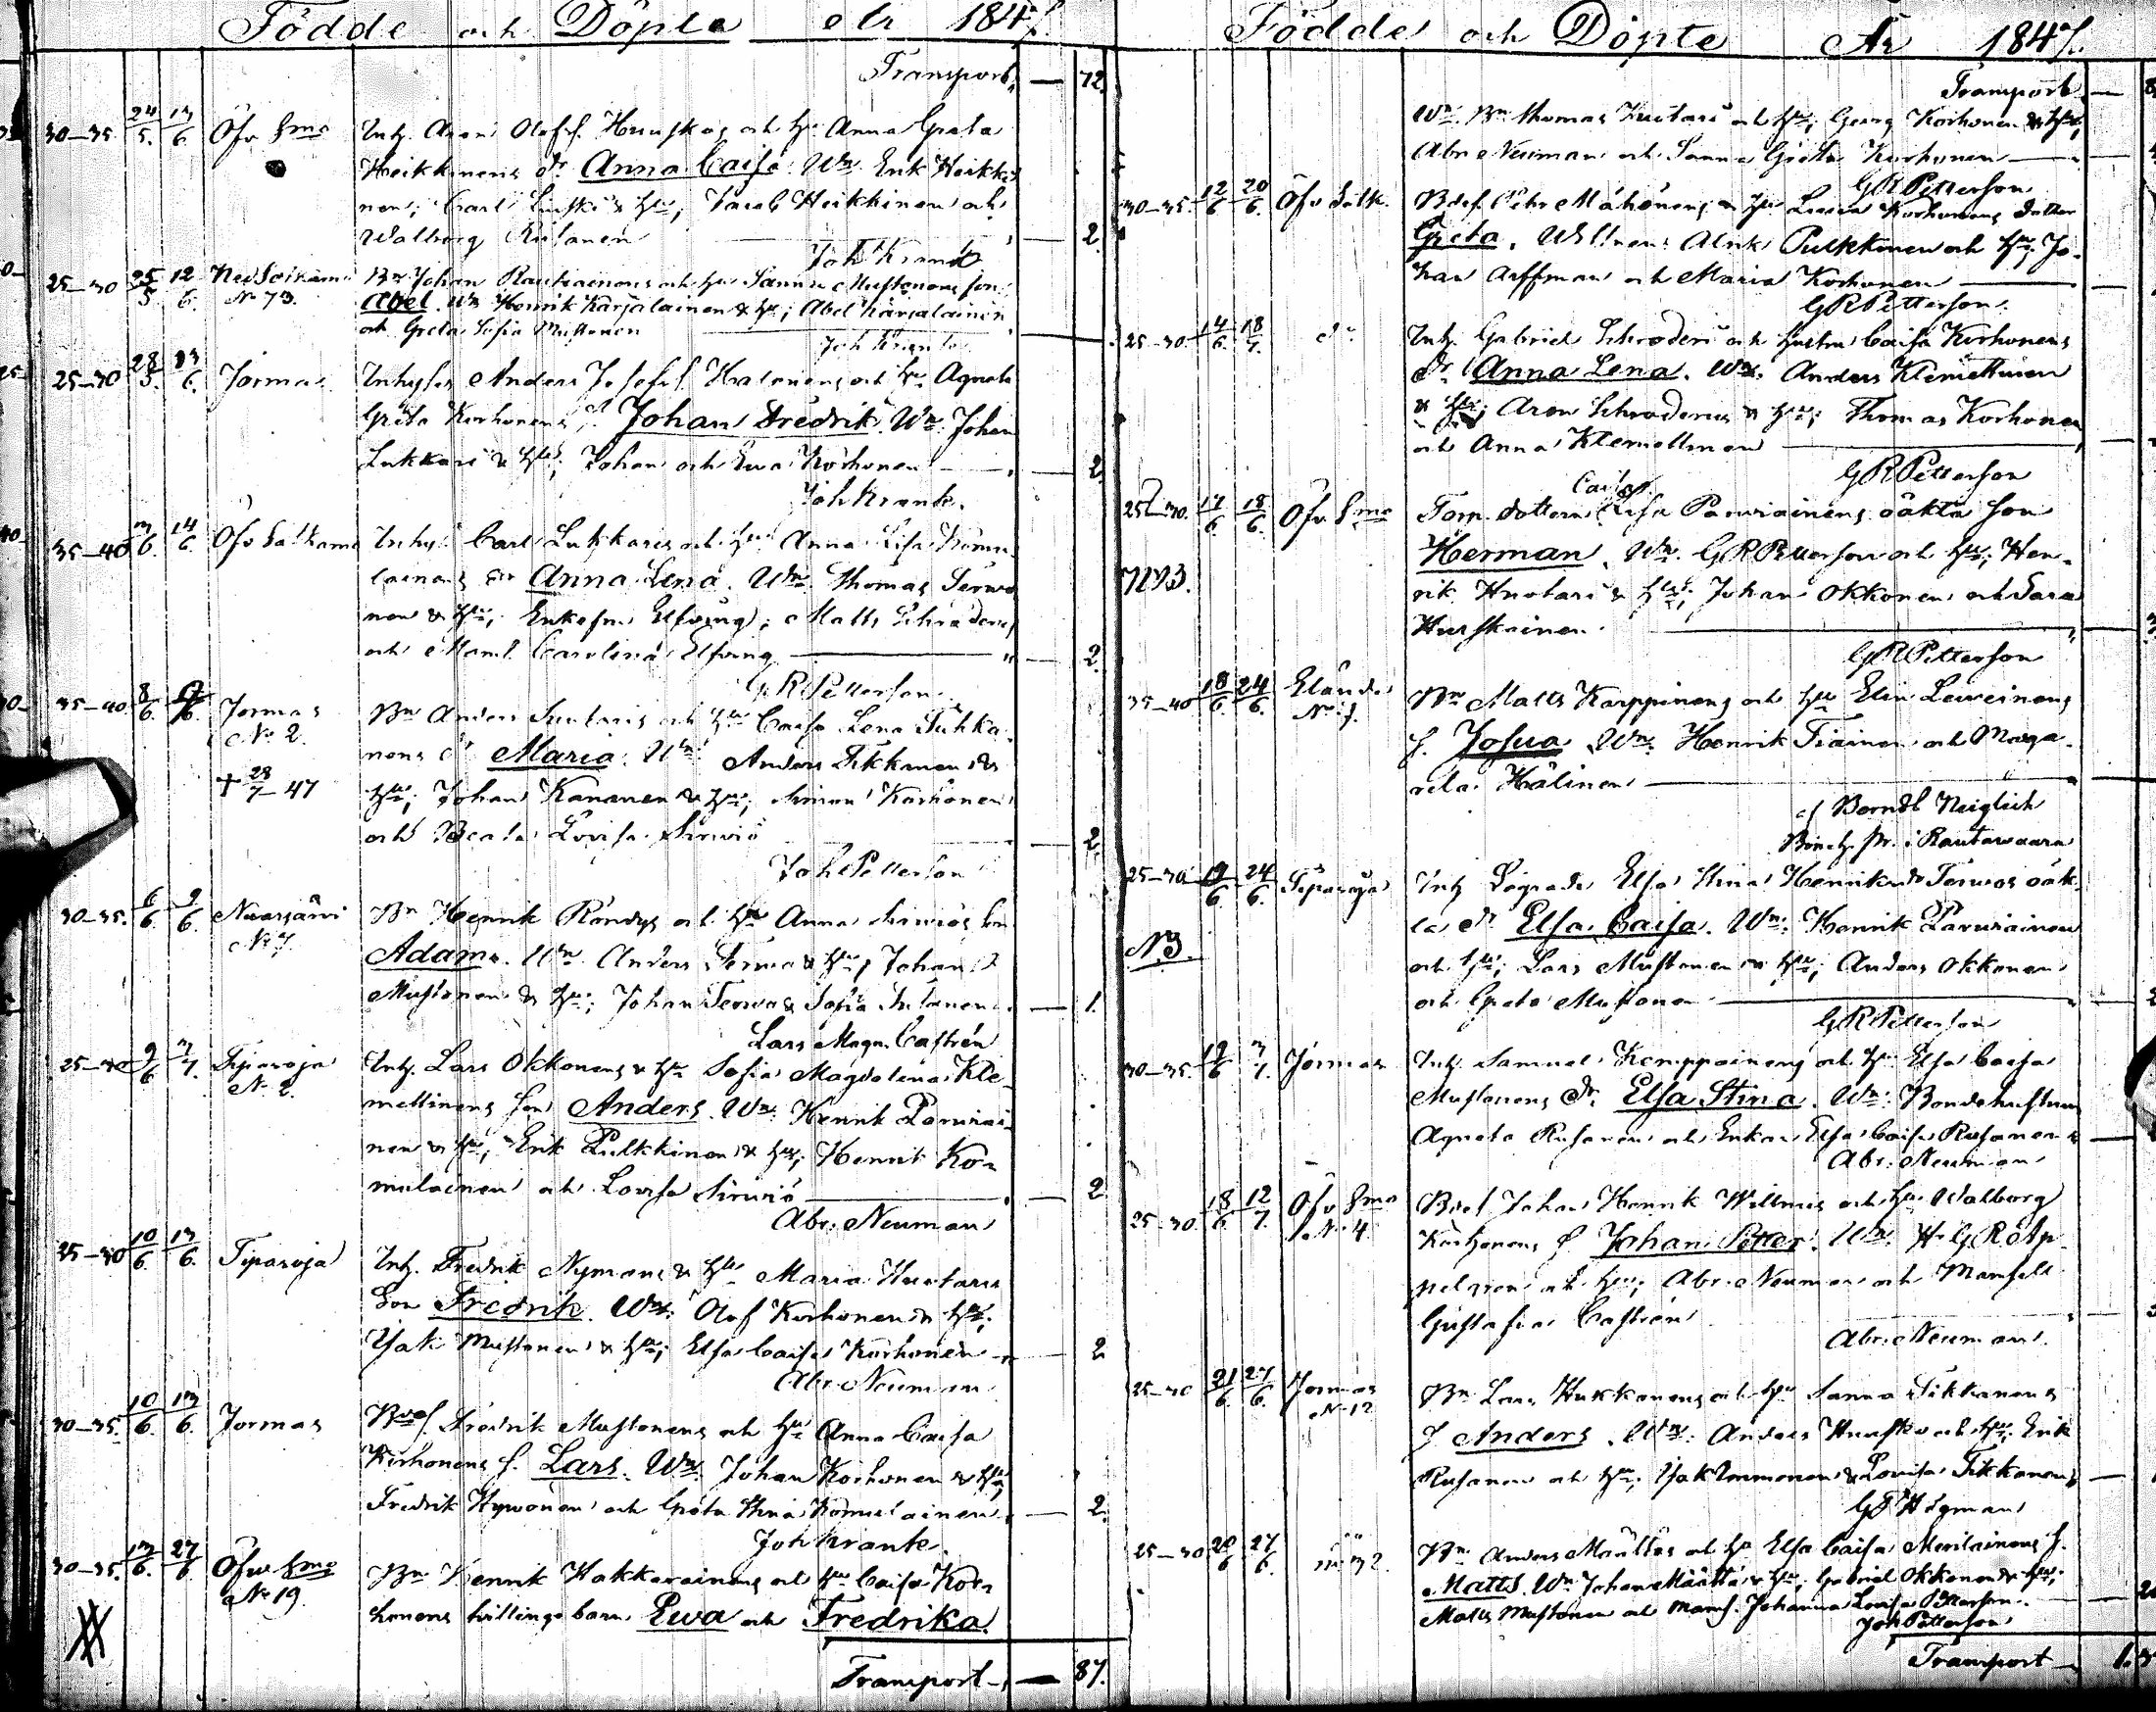 Födde och Döpte År 1847.
Transport — 72.
30–35. 24/5. 13/6. Öfv Smo Inh. Aron Olofs. Hurskas och hu Anna Greta
Heikkinens dr Anna Caisa. Wn Erik Heikki-
nen; Carl & hu; Jacob Heikkinen och
Walborg — 2.
Joh Krank
25–30 25/5. 12/6. Ned Sotkamo Bn Johan Rautiainens och hu Sanna Mustonens son
No 73. Abel. Wn Henrik Karjalainen & hu; Abel Karjalainen
och Greta Sofia Mustonen
Joh Krank
25–30 28/5. 13/6. Jormas Inhyses Anders Josefs. Halonens och hu Agneta
Greta Korhonens s. Johan Fredrik. Wn Johan
Lukkari & hu; Johan och Ewa Korhonen — 2
Joh Krank.
35–40 3/6. 14/6. Öfv Sotkamo Inhys. Carl Lukkaris och hu Anna Lisa Komu-
lainens dr Anna Lena. Wn Thomas Terwo
nen & hu; Enkefru Elfving; Matts Schroderus
och Maml. Carolina Elfving — 2.
G R Petterson
35–40 8/6. Jormas Bn Anders Huotaris och hu Caisa Lena Tuhka-
No 2. nens dr Maria. Wn Anders Tikkanen &
+ 28/7 47 hu; Johan Kananen & hu; Simon Korhonen
och Beata Lovisa Sirviö — 2.
Joh Petterson
30–35. 6/6 9/6. Nuasjärvi Bn Henrik Röndys och hu Anna Sirviös son
No 7. Adam. Wn Anders Terwo & hu; Johan
Mustonen & hu; Johan Terwo & Sofia — 1.
Lars Magn. Castrén
25–30 9/6 3/7. Tiparoja Inh. Lars Okkonens & hu Sofia Magdalena Kle-
No 2. mettinens son Anders. Wn Henrik Parviai-
nen & hu; Erik Pulkkinen & hu; Henrik Ko-
mulainen och Lovisa Sirviö — 2
Abr. Neuman
25–30 10/6. 13/6. Tiparoja Inh. Fredrik Nymans & hu Maria Huotaris
Son Fredrik. Wn: Olof Korhonen & hu;
Isak Mustonen & hu; Elsa Caisa Korhonen — 2
Abr. Neuman
30–35. 10/6. 13/6. Jormas Bros. Fredrik Mustonens och hu Anna Caisa
Korhonens s. Lars. Wn Johan Korhonen & hu;
Fredrik Hyvönen och Greta Stina Komulainen — 2.
Joh Krank.
30–35. 13/6. 27/6 Öfv Smo Bn Henrik Hakkarainens och hu Caisa Kor-
No 19. honens tvillingebarn Ewa och Fredrika.
Transport — 87.
Födde och Döpte År 1847.
Transport —
Wn. Bn Thomas Huotari och hu; Georg Korhonen & hu;
Abr. Neuman och Sanna Greta Korhonen —
G R Petterson
30–35. 12/6 20/6. Öfv Sotk. Bros. Pehr Mähönens & hu Lovisa Korhonens dotter
Greta. Wittnen: Alrik Pulkkinen och hu; Jo-
han Arffman och Maria Korhonen
G R Petterson.
25–30. 14/6. 18/7. do Inh. Gabriel Schroderi och hustru Caisa Korhonens
dr. Anna Lena. Wn. Anders Klemettinen
& hu; Aron Schroderus & hu; Thomas Korhonen
och Anna Klemettinen
G R Petterson
Caisa
25–30. 17/6 18/6. Öfv Smo Torp. dottern Lisa Parviainens oäkta son
Herman. Wn. G R Petterson och hu; Hen-
NB. rik Huotari & hu; Johan Okkonen och Sara
Hurskainen.
G R Petterson
35–40 18/6. 24/6. Eländs Bn Matts Karppinens och hu Elin Leweinens
No 1. s. Josua Wn. Henrik Tiainen och Marga-
reta Hälinen
af Berndt Neiglick
i Rautawaara
25–30 19/6. 24/6. Tiparoja Inh. Lögrade Elsa Stina Henriksdr Terwos oäk-
ta dr Elsa Caisa. Wn. Henrik Parviainen
NB. och hu; Lars Mustonen & hu; Anders Okkonen
och Greta Mustonen
G R Petterson
30–35. 19/6 3/7. Jormas Inh. Samuel Kemppainens och hu Elsa Caisa
Mustonens dr. Elsa Stina. Wn: Bondehustrun
Agneta Rusanen och Enkan Elsa Caisa Rusanen
Abr. Neuman
25–30. 18/6. 12/7. Öfv Smo Bros. Johan Henrik Willmis och hu Walborg
No 4. Korhonens s. Johan Petter. Wn. H G Rohp-
pelgren och hu; Abr. Neuman och Mamsell
Gustafva Castrén
Abr. Neuman.
25–30 21/6. 27/6. Jormas Bn Lars Hukkanens och hu Sanna Tikkanens
No 12 s Anders. Wn: Anders Hursko och hu; Erik
Rusanen och hu; Isak Immonen & Lovisa Tikkanen
G F Högman
25–30 20/6 27/6. Bn Anders Määttäs och hu Elsa Caisa Meriläinens s.
Matts. Wn. Johan Määttä & hu; Gabriel Okkonen & hu;
Matts Mustonen och Mams. Johanna Lovisa Petterson.
Joh Petterson
Transport